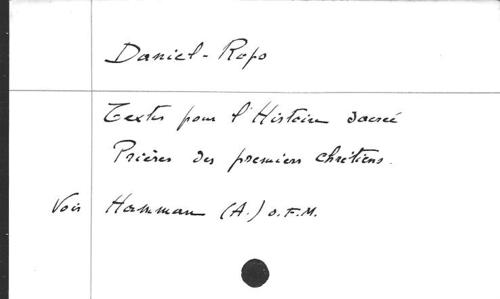 Daniel-Rops
Textes pour l'Histoire sacrée
Prières des premiers chrétiens.
Voir Hamman (A.) O.F.M.